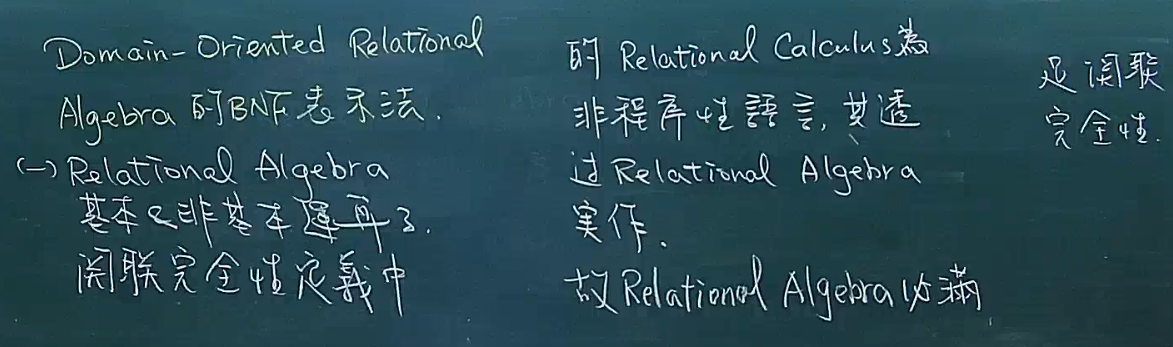 Domain-Oriented Relational
Algebra 的BNF表示法.
(一) Relational Algebra
基本&非基本運再子.
関联完全性定義中
的 Relational Calculus為
非程序性語言,其透
过 Relational Algebra
実作.
故 Relational Algebra 必滿
足関联
完全性.